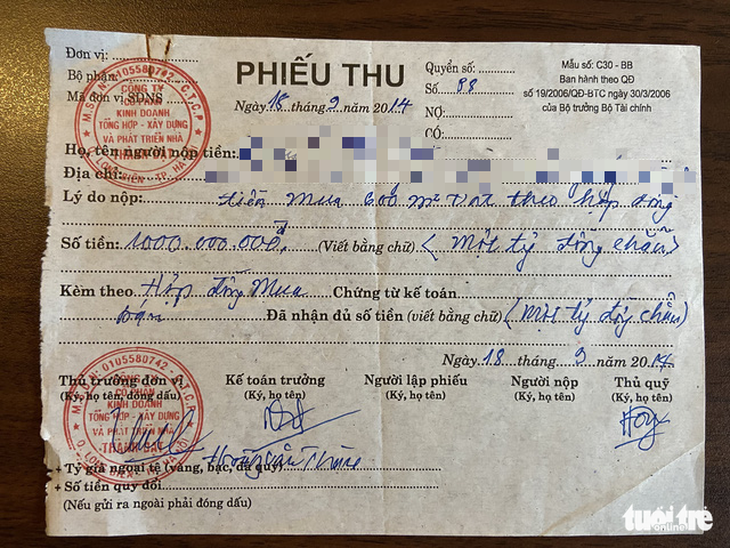 Đơn vị:
Bộ phận:
Mã đơn vị SDNS
PHIẾU THU
Ngày 18 tháng 9 năm 2014
Quyển số:
Số 88
NỢ:
CÓ:
Mẫu số: C30 - BB
Ban hành theo QĐ
số 19/2006/QĐ-BTC ngày 30/3/2006
của Bộ trưởng Bộ Tài chính
M.S.D.N: 0105580742 - C.T.C.P
CÔNG TY
CỔ PHẦN
KINH DOANH
TỔNG HỢP - XÂY DỰNG
VÀ PHÁT TRIỂN NHÀ
Q. LONG BIÊN - TP. HÀ
Họ, tên người nộp tiền:
Địa chỉ:
Lý do nộp: tiền mua 600 m² đất theo hợp đồng
Số tiền: 1000.000.000đ. (Viết bằng chữ) (Một tỷ đồng chẵn)
Kèm theo Hợp đồng mua Chứng từ kế toán
bán Đã nhận đủ số tiền (viết bằng chữ) (Một tỷ đồng chẵn)
Ngày 18 tháng 9 năm 2014
Thủ trưởng đơn vị Kế toán trưởng Người lập phiếu Người nộp Thủ quỹ
(Ký, họ tên, đóng dấu) (Ký, họ tên) (Ký, họ tên) (Ký, họ tên) (Ký, họ tên)
M.S.D.N: 0105580742 - C.T.C.P
CÔNG TY
CỔ PHẦN
KINH DOANH
TỔNG HỢP - XÂY DỰNG
VÀ PHÁT TRIỂN NHÀ
THÀNH ĐẠT
+ Tỷ giá ngoại tệ (vàng, bạc, đá quý)
+ Số tiền quy đổi
(Nếu gửi ra ngoài phải đóng dấu)
tuổi trẻ
online